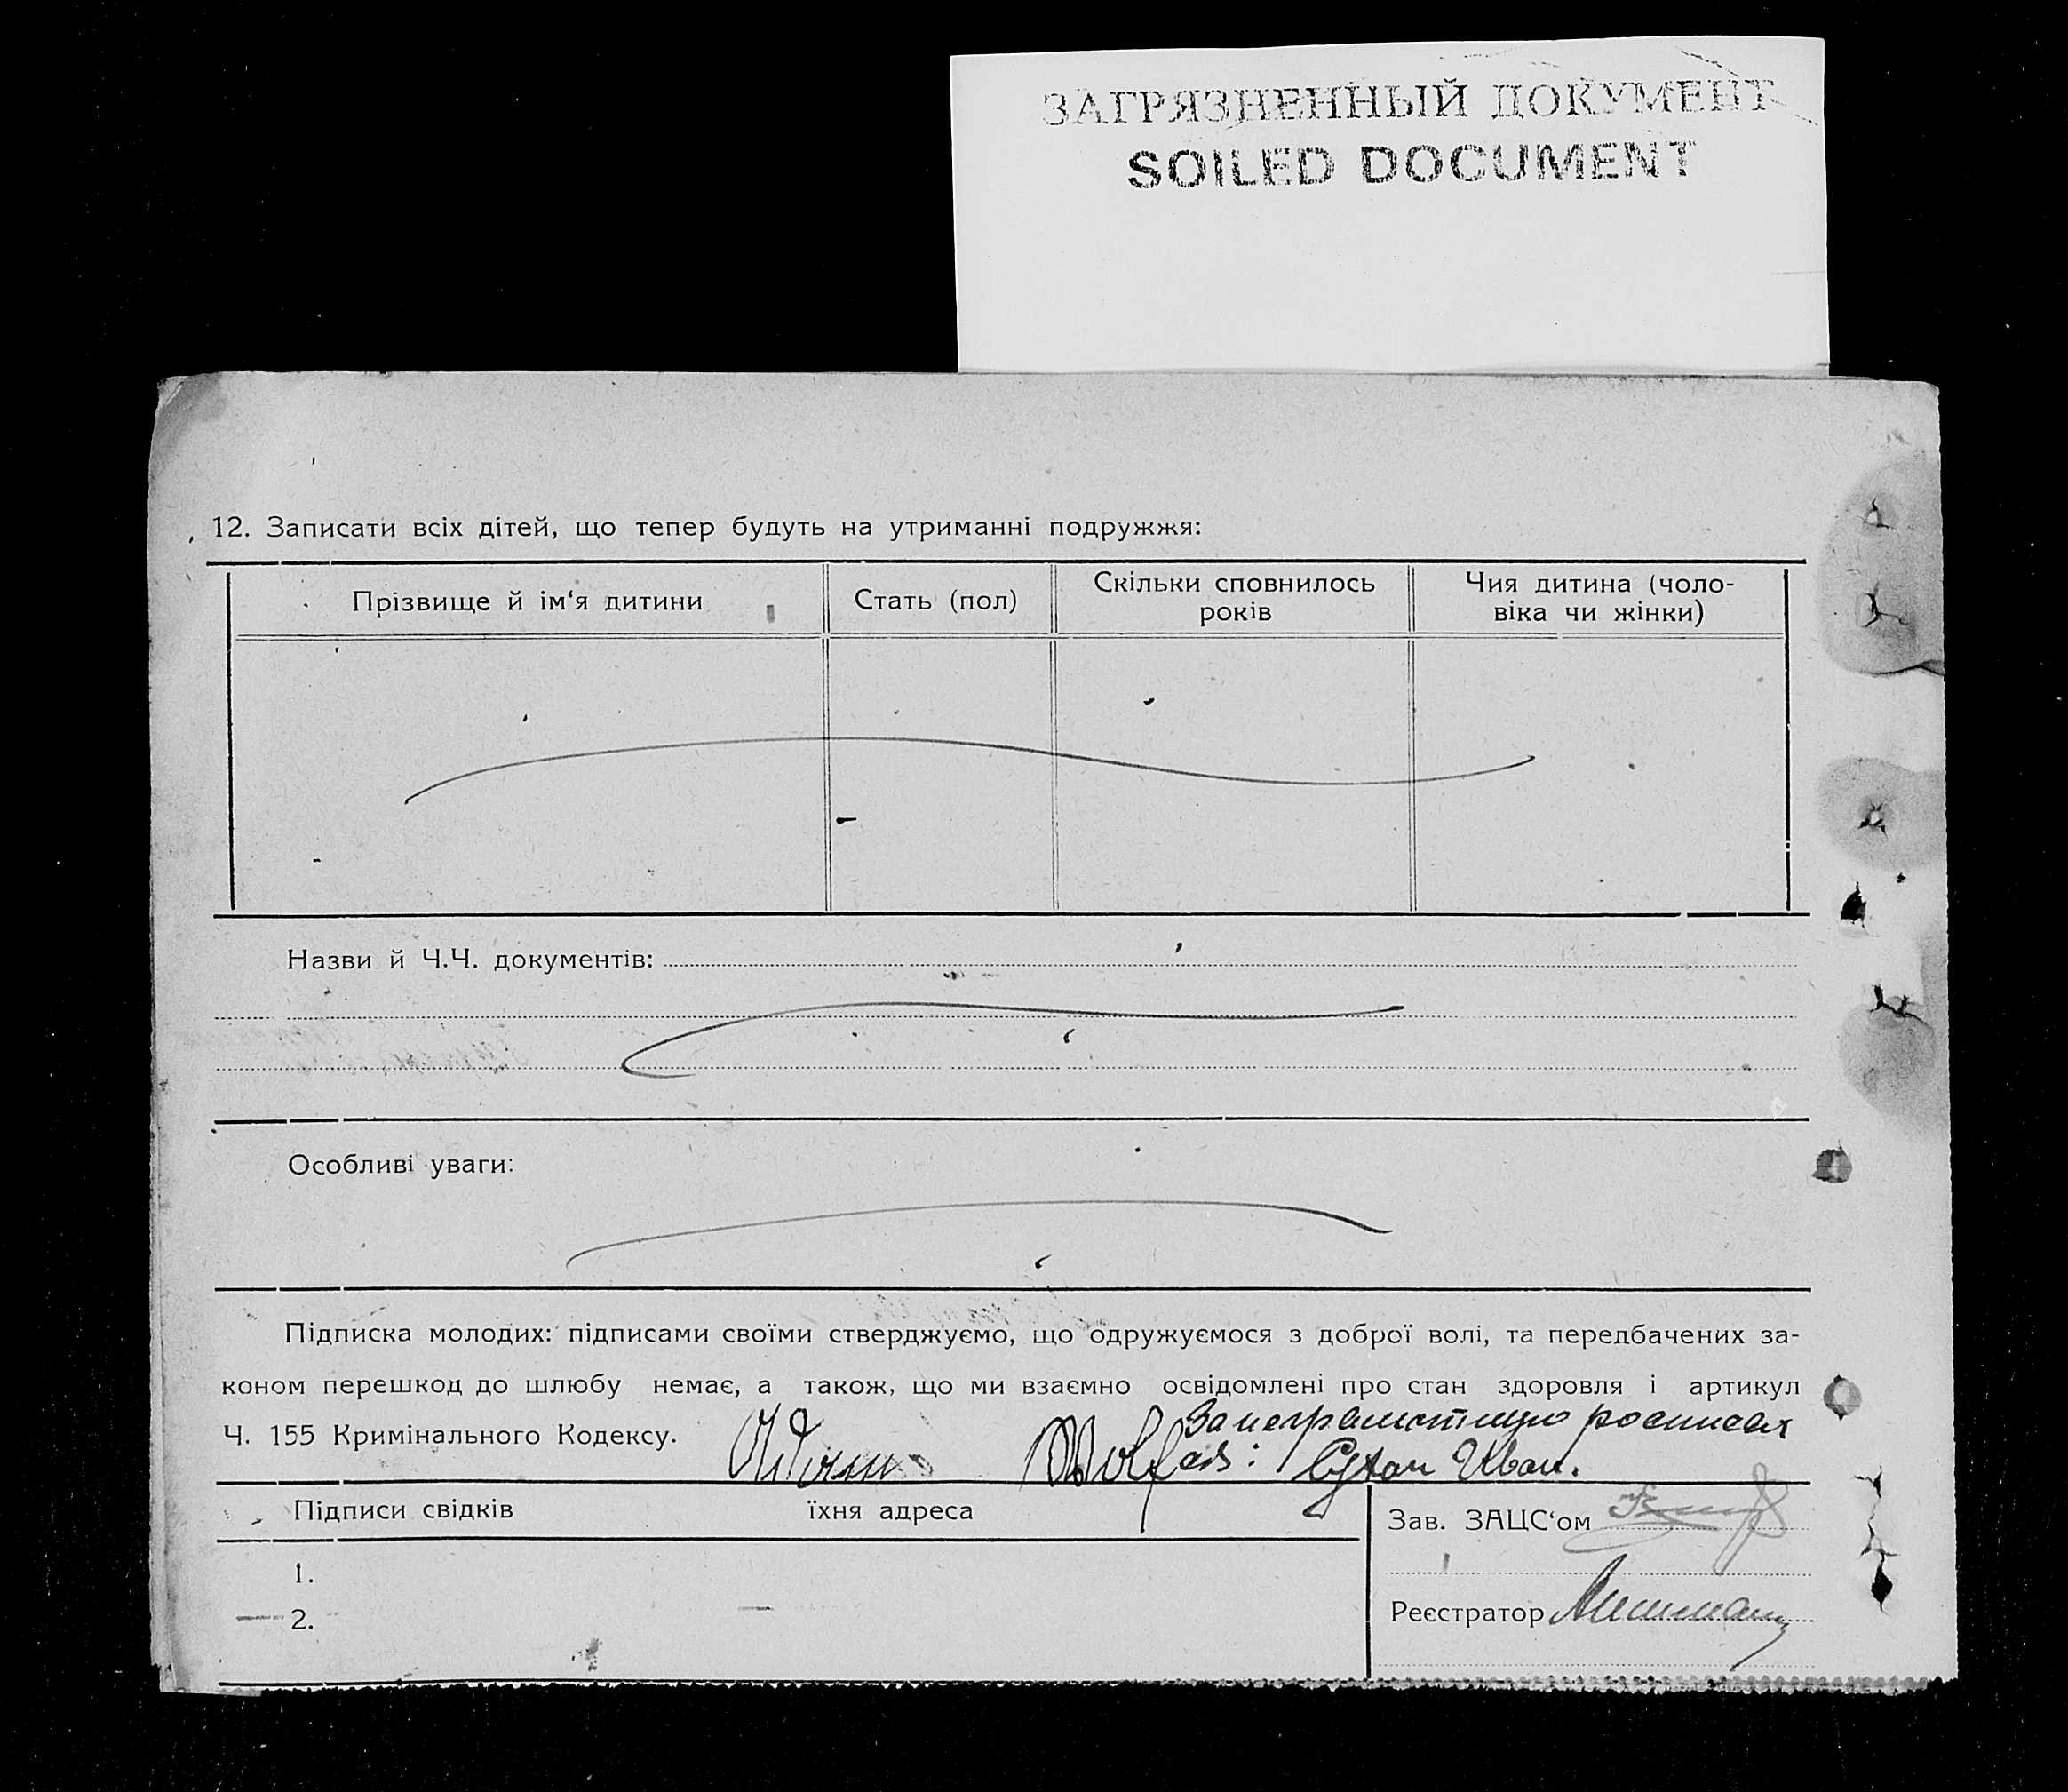 ЗАГРЯЗНЕННЫЙ ДОКУМЕНТ
SOILED DOCUMENT
12. Записати всіх дітей, що тепер будуть на утриманні подружжя:
Прізвище й ім‘я дитини
Стать (пол)
Скільки сповнилось
років
Чия дитина (чоло-
віка чи жінки)
Назви й Ч.Ч. документів:
Особливі уваги:
Підписка молодих: підписами своїми стверджуємо, що одружуємося з доброї волі, та передбачених за-
коном перешкод до шлюбу немає, а також, що ми взаємно освідомлені про стан здоровля і артикул
За неграмотную
Ч. 155 Кримінального Кодексу.
Иван.
Підписи свідків їхня адреса
Зав. ЗАЦС‘ом
1.
Реєстратор
2.